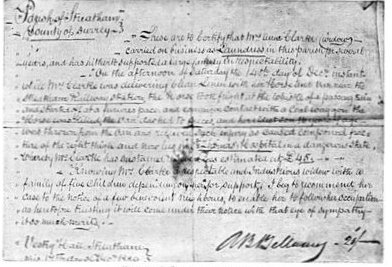 Parish of Streatham
County of Surrey
These are to Certify that Mrs Anna Clarke (widow)
carried on business as Laundress in this parish for several
years, and has hitherto supported a large family in respectability.
On the afternoon of Saturday the 14th day of Decr instant
while Mrs Clarke was delivering clean Linen with her Horse and Van near the
Streatham Railway Station the Horse took fright at the whistle of a passing train
and started off at a furious pace and coming in contact with a Coal Waggon the
Horse was killed the Van dashed to pieces and her eldest son 18 years of age
was thrown from the Van and received such injury as caused compound frac-
ture of the right thigh and now lies in St Thomas Hospital in a dangerous state.
Whereby Mrs Clarke has sustained a loss estimated at £45.
Knowing Mrs Clarke a respectable and industrious widow with a
family of five children dependent upon her for support, I beg to recommend her
case to the notice of a few benevolent neighbours, to enable her to follow her occupation
as heretofore trusting it will come under their notice with that eye of sympathy
it so much merits.
Vestry Hall Streatham
A B Bellamy